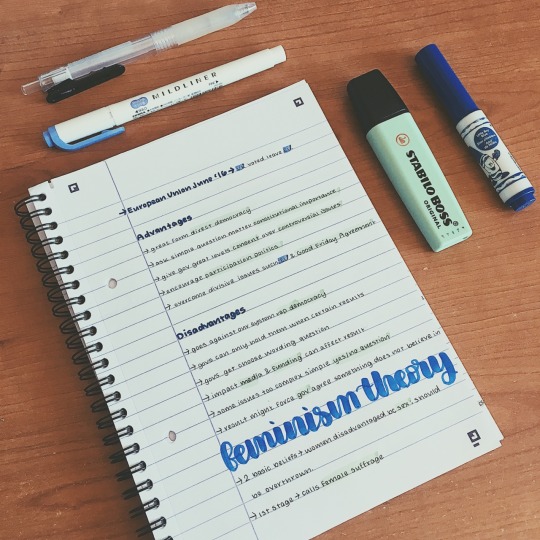 MILDLINER
STABILO BOSS
ORIGINAL
→ European Union June '16 → 52% voted leave
Advantages
→ great form direct democracy
→ ask simple question matter constitutional importance
→ give gov great levels consent over controversial issues
→ encourage participation politics
→ overcome divisive issues such Good Friday Agreement
Disadvantages
→ goes against our system rep democracy
→ govs can only hold them when certain results
→ govs get choose wording question
→ impact media & funding can affect result
→ some issues too complex simple yes/no question
→ result might force gov agree something does not believe in
feminism theory
→ 2 basic beliefs → women disadvantaged bc sex, should
be overthrown.
→ 1st stage → calls female suffrage